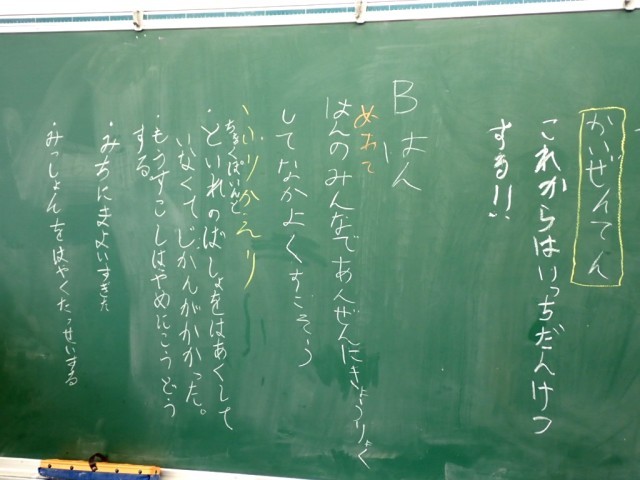 かいぜんてん
これからはいっちだんけつ
する!!
Bはん
めあて
はんのみんなであんぜんにきょうりょく
してなかよくすごそう
ふりかえり
ちぇっくぽいんと
・といれのばしょをはあくして
いなくてじかんがかかった。
・もうすこしはやめにこうどう
する
・みちにまよいすぎた
・みっしょんをはやくたっせいする